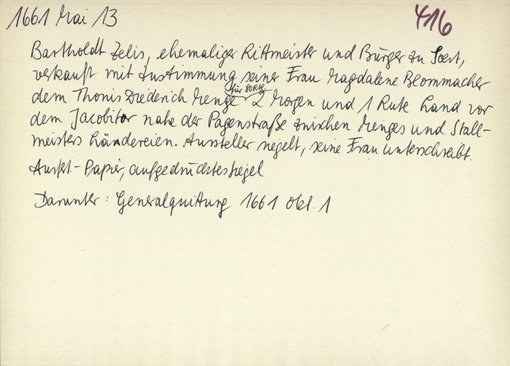 1661 Mai 13
416
Bartholdt Zelis, ehemaliger Rittmeister und Bürger zu Soest,
verkauft mit Zustimmung seiner Frau Magdalene Blommacher
dem Thonis Diederich Menge 2 Morgen und 1 Rute Land vor
dem Jacobitor nahe der Pagenstraße zwischen Menges und Stall-
meisters Ländereien. Aussteller siegelt, seine Frau unterschreibt.
Ausf.- Papier, aufgedrücktes Siegel
Darunter: Generalquittung 1661 Okt. 1